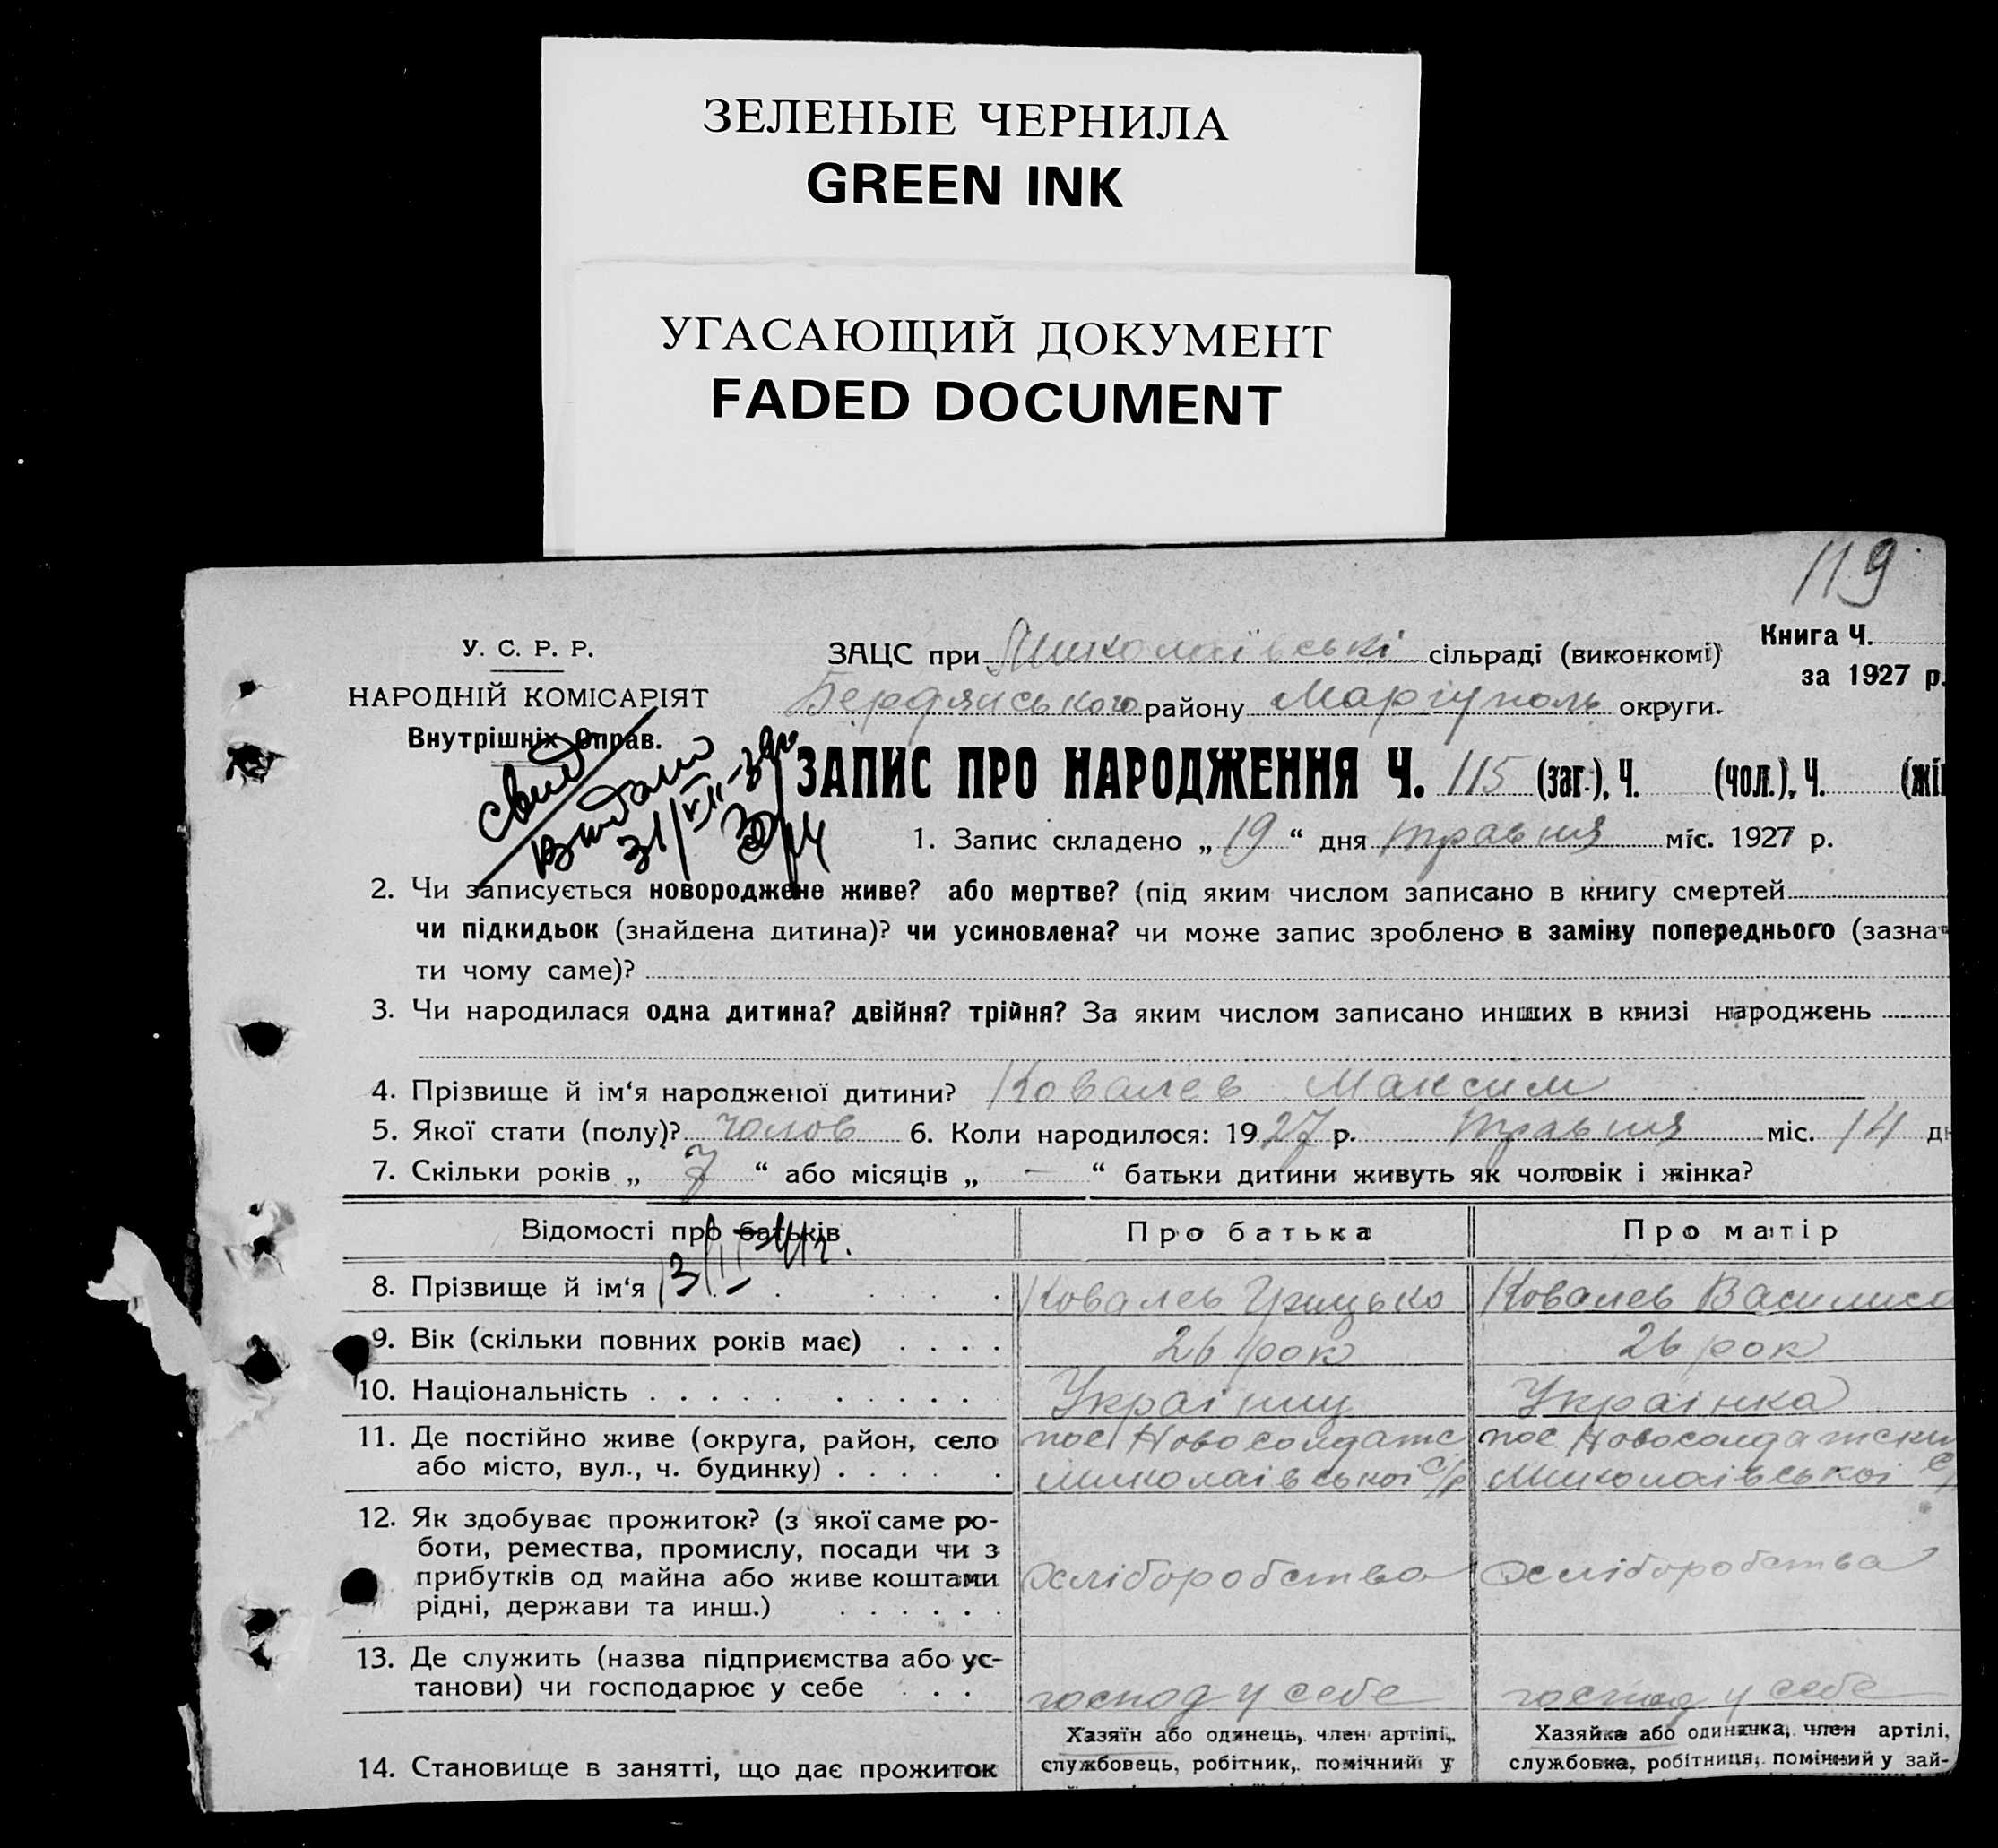 ЗЕЛЕНЫЕ ЧЕРНИЛА
GREEN INK
УГАСАЮЩИЙ ДОКУМЕНТ
FADED DOCUMENT
119
У. С. Р. Р.
НАРОДНІЙ КОМІСАРІЯТ
Внутрішніх Оправ.
ЗАЦС при Миколаївські сільраді (виконкомі)
Книга Ч.
за 1927 р.
Бердянського району Маріуполь округи.
ЗАПИС ПРО НАРОДЖЕННЯ Ч. 115 (заг.), Ч. (чол.), Ч. (жі
1. Запис складено „ 19 “ дня травня міс. 1927 р.
2. Чи записується новороджене живе? або мертве? (під яким числом записано в книгу смертей
чи підкидьок (знайдена дитина)? чи усиновлена? чи може запис зроблено в заміну попереднього (зазна
ти чому саме)?
3. Чи народилася одна дитина? двійня? трійня? За яким числом записано инших в книзі народжень
4. Прізвище й ім‘я народженої дитини? Ковалев Максим
5. Якої стати (полу)? чолов 6. Коли народилося: 1927 р. травня міс. 14 д
7. Скільки років „ 7 “ або місяців „ — “ батьки дитини живуть як чоловік і жінка?
Відомості про батьків Про батька Про матір
8. Прізвище й ім‘я Ковалев Грицько Ковалев Василиса
9. Вік (скільки повних років має) 26 рок 26 рок
10. Національність Украінец Украінка
11. Де постійно живе (округа, район, село пос Новосолдатс пос Новосолдатски
або місто, вул., ч. будинку) Миколаівськоі с/р Миколаівськоі с/
12. Як здобуває прожиток? (з якої саме ро-
боти, ремества, промислу, посади чи з
прибутків од майна або живе коштами хліборобства хліборобства
рідні, держави та инш.)
13. Де служить (назва підприємства або ус-
танови) чи господарює у себе господ у себе господ у себе
Хазяїн або одинець, член артілі, Хазяйка або одиначка, член артілі,
14. Становище в занятті, що дає прожиток службовець, робітник, помічний у службовка, робітниця, помічний у зай-